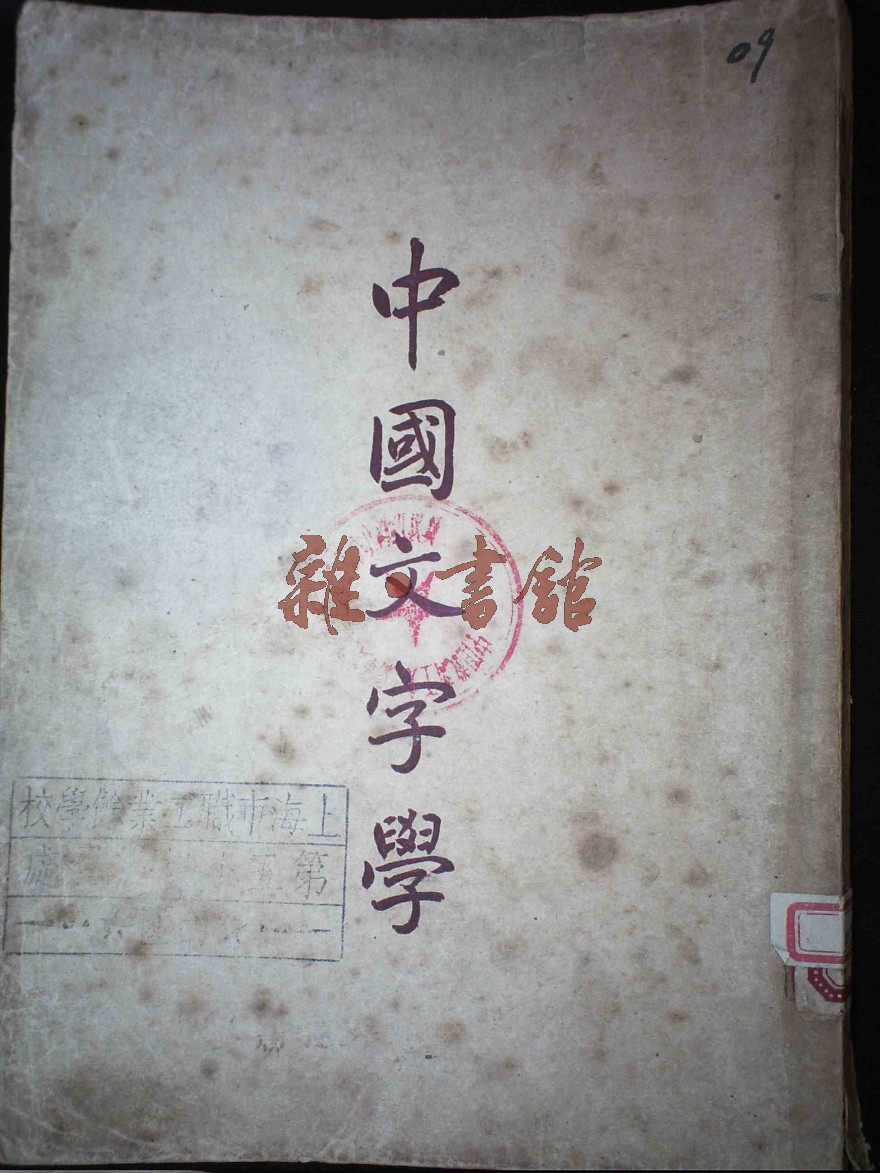 09
中國文字學
雜·書館
上海市職工業餘學校
第五十 處